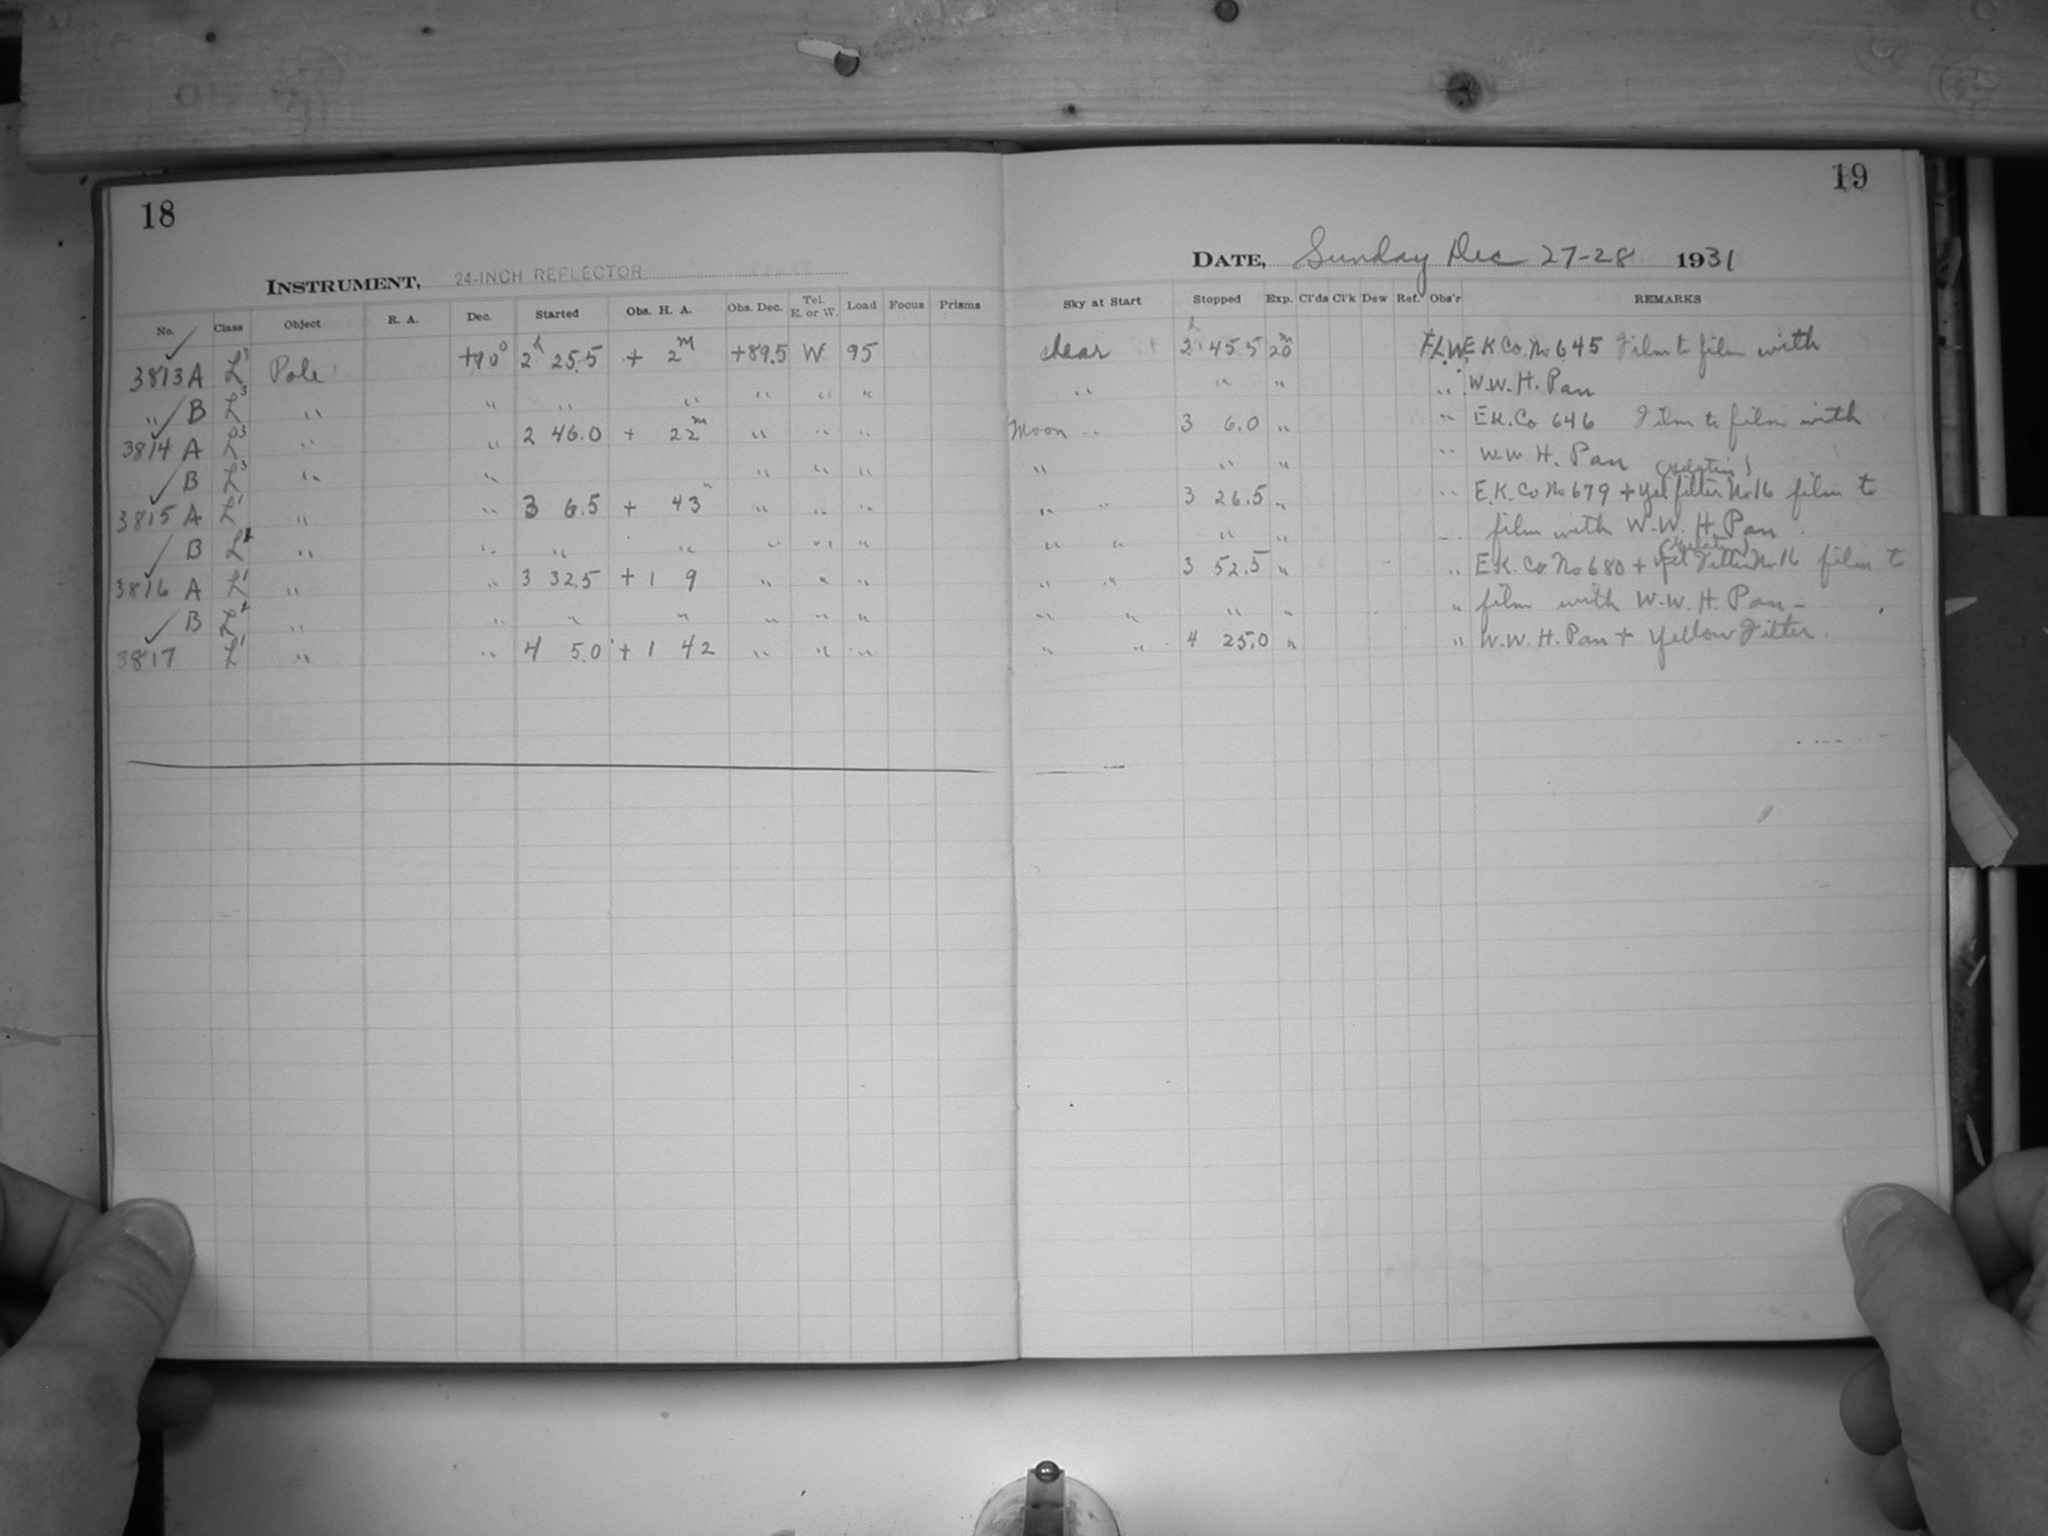 18
INSTRUMENT, 24-INCH REFLECTOR
No. Class Object R. A. Dec. Started Obs. H. A. Obs. Dec. Tel. E. or W. Load Focus Prisms
3813 A L³ Pole +90° 2ʰ 25.5 + 2ᵐ +89.5 W 95
" B L³ " " " " " " "
3814 A L³ " " 2 46.0 + 22ᵐ " " "
B L³ " " " " "
3815 A L¹ " " 3 6.5 + 43 " " "
B L " " " " " " "
3816 A L¹ " " 3 32.5 + 1 9 " " "
B L " " " " " " "
3817 L¹ " " 4 5.0 + 1 42 " " "
19
DATE, Sunday Dec 27-28 1931
Sky at Start Stopped Exp. Cl'ds Cl'k Dew Ref. Obs'r REMARKS
clear 2ʰ 45.5 20ᵐ FLW E K Co. No 645 Film to film with
" " " " W.W.H. Pan
Moon " 3 6.0 " " E K. Co 646 Film to film with
" " " " W.W.H. Pan
" " 3 26.5 " " E.K. Co No 679 + Yel filter (Gelatin) No 16 film to
" " " " " film with W.W.H. Pan
" " 3 52.5 " " E.K. Co No 680 + Yel Filter (Gelatin) No 16 film to
" " " " " film with W.W.H. Pan-
" " 4 25.0 " " W.W.H. Pan + Yellow Filter.